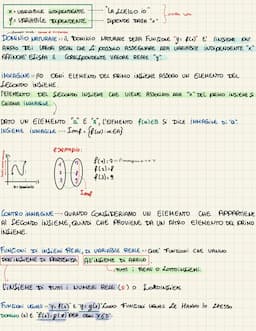 X = VARIABILE INDIPENDENTE → "LA SCELGO IO"
Y = VARIABILE DIPENDENTE → DIPENDE DALLA "X"
DOMINIO NATURALE... IL DOMINIO NATURALE DELLA FUNZIONE "y = f(x)" È L'INSIEME PIÙ
AMPIO DEI VALORI REALI CHE SI POSSONO ASSEGNARE ALLA VARIABILE INDIPENDENTE "X"
AFFINCHÉ ESISTA IL CORRISPONDENTE VALORE REALE "Y".
IMMAGINE... AD OGNI ELEMENTO DEL PRIMO INSIEME ASSOCIO UN ELEMENTO DEL
SECONDO INSIEME.
L'ELEMENTO DEL SECONDO INSIEME CHE VIENE ASSOCIATO ALLA "X" DEL PRIMO INSIEME SI
CHIAMA IMMAGINE.
DATO UN ELEMENTO "a" È "X", L'ELEMENTO f(a)∈B SI DICE IMMAGINE DI "a".
INSIEME IMMAGINE... Imf = {f(a): a∈A}
ESEMPIO:
Imf
CONTRO IMMAGINE... QUANDO CONSIDERIAMO UN ELEMENTO CHE APPARTIENE
AL SECONDO INSIEME, QUINDI CHE PROVIENE DA UN ALTRO ELEMENTO DEL PRIMO
INSIEME.
FUNZIONI DI INSIEMI REALI, DI VARIABILE REALE... SONO FUNZIONI CHE VANNO
DALL'INSIEME DI PARTENZA ALL'INSIEME DI ARRIVO
TUTTI I REALI O SOTTOINSIEMI.
L'INSIEME DI TUTTI I NUMERI REALI (R) O SOTTOINSIEMI
FUNZIONI UGUALI... y = f(x) E y = g(x) SONO FUNZIONI UGUALI SE HANNO LO STESSO
DOMINIO (D) E f(x) = g(x) PER OGNI X∈D